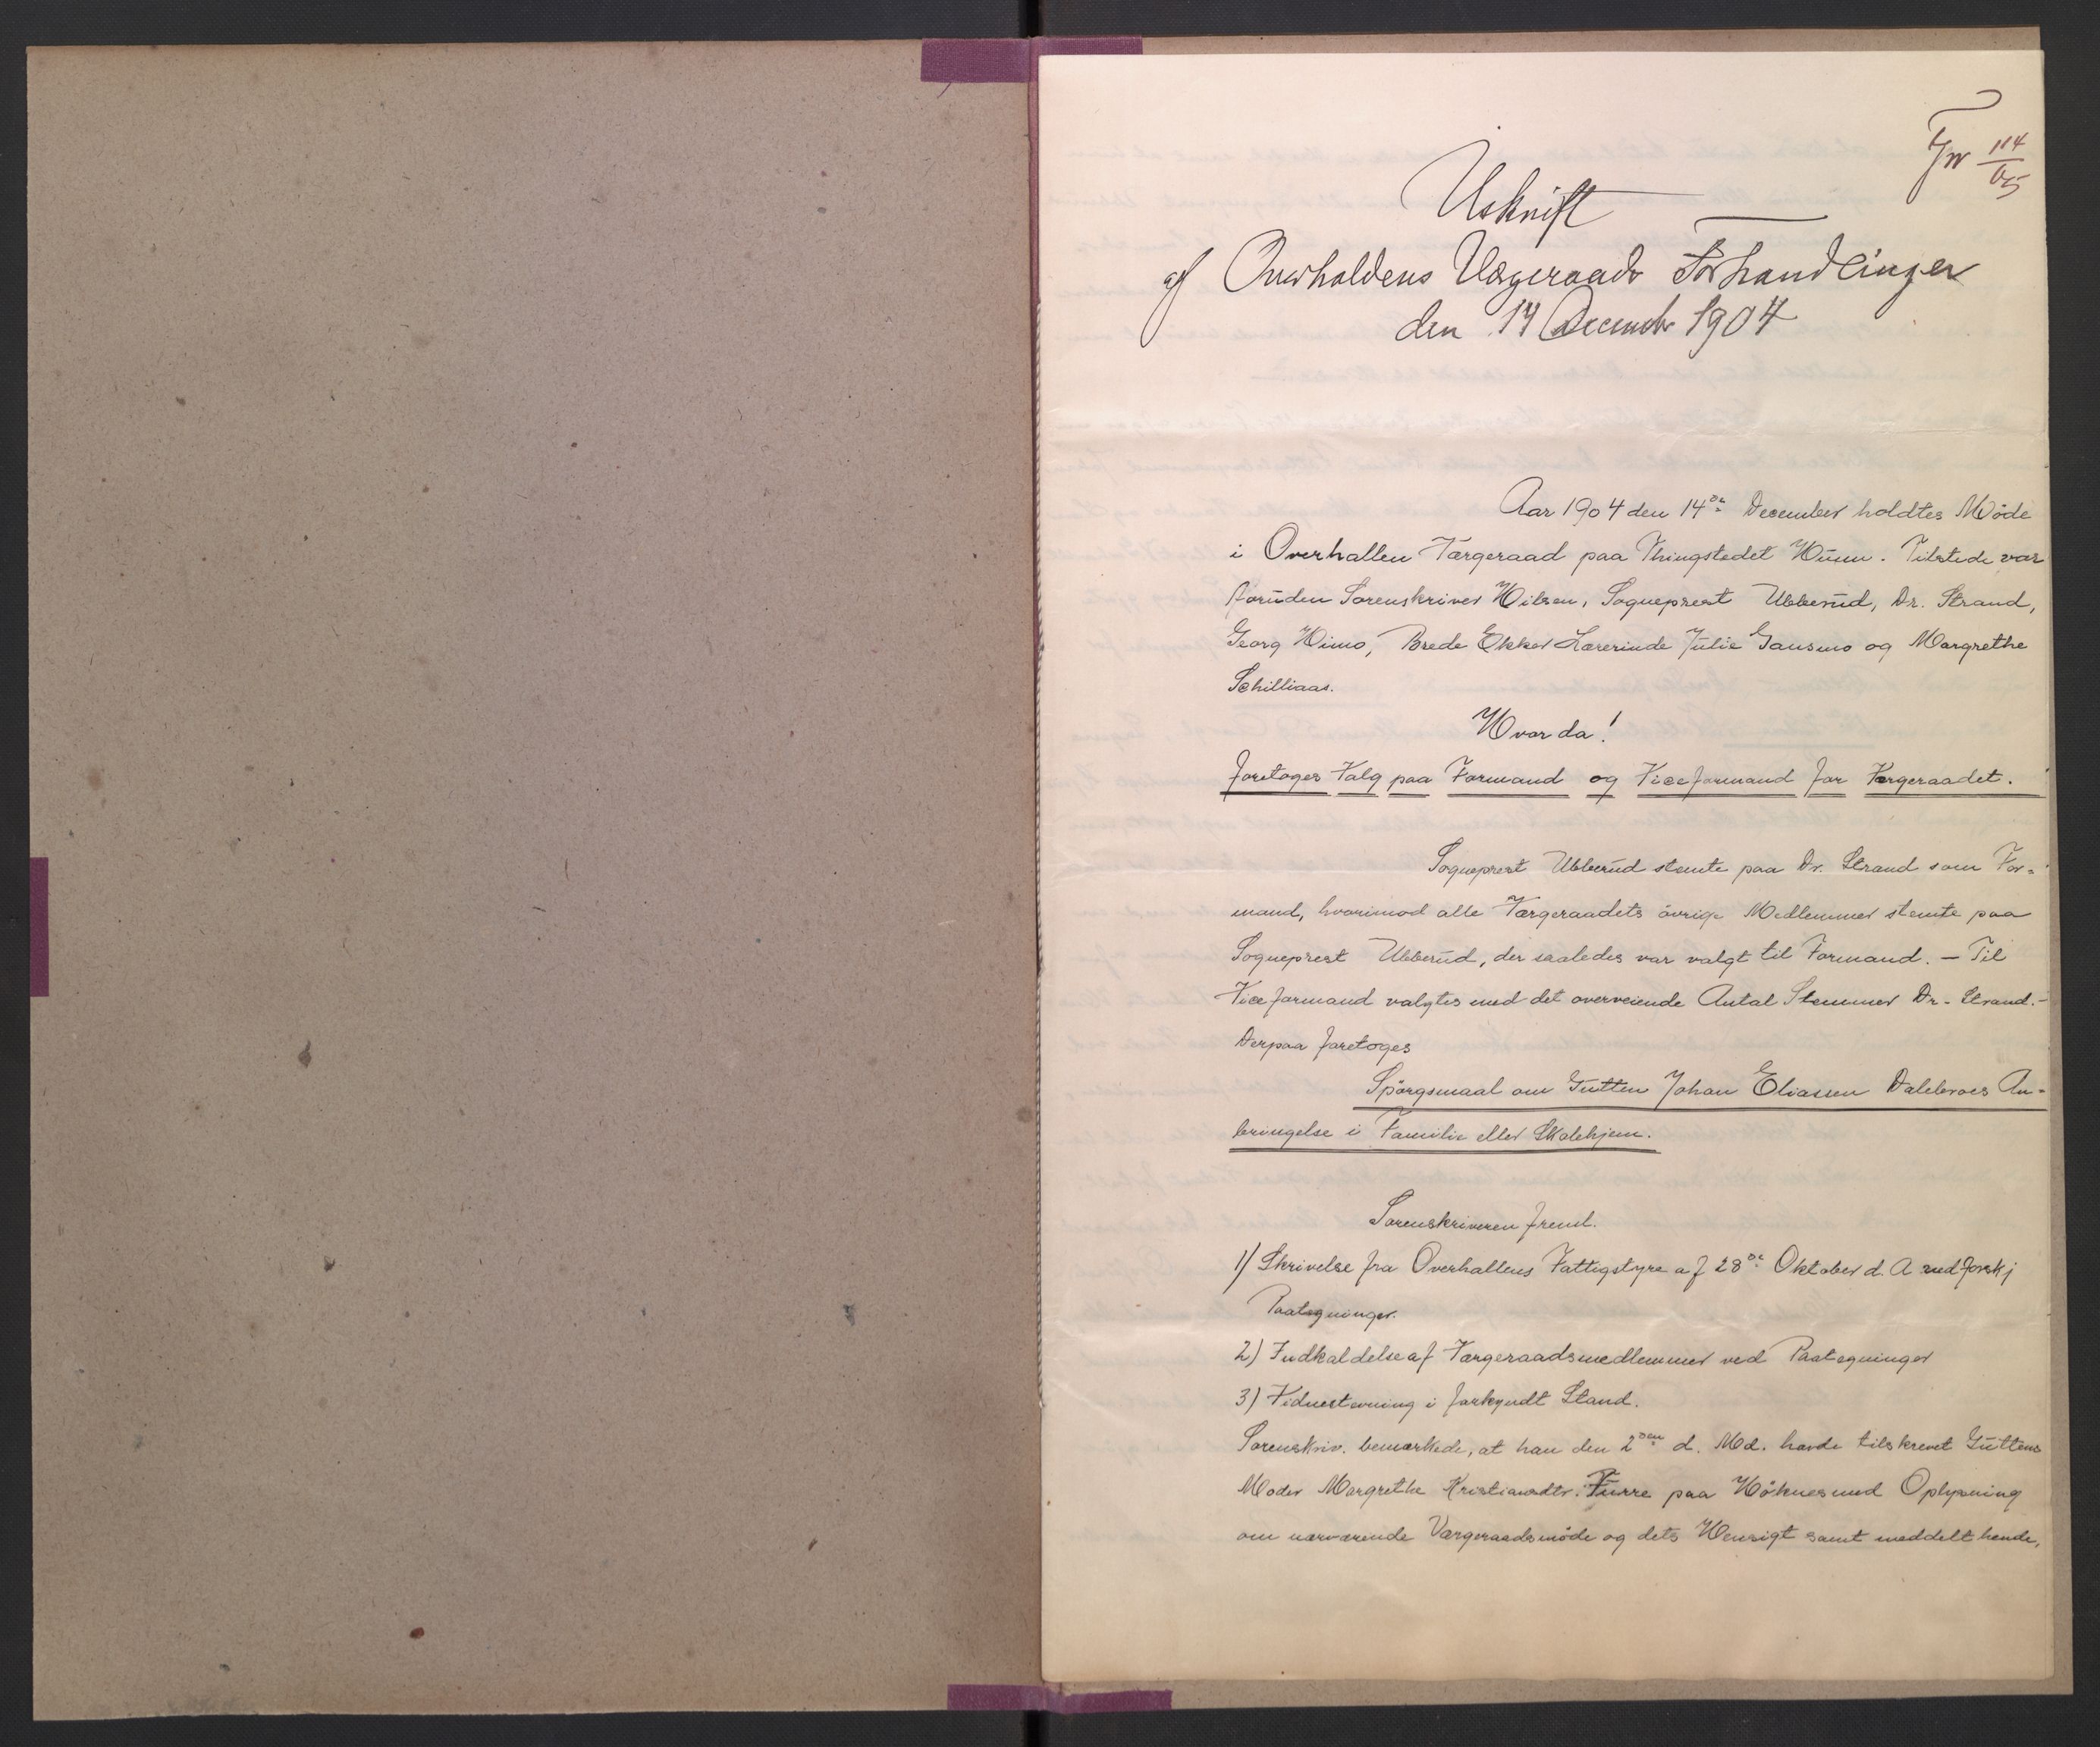 Jr 114/05
Uskrift
af Overhaldens Værgeraads Forhandlinger
den 14 Decemb 1904
Aar 1904 den 14de December holdtes Møde
i Overhallen Værgeraad paa Thingstedet Hunn. Tilstede var
foruden Sorenskriver Nilsen, Sogneprest Ubberud, Dr. Strand,
Georg Himo, Brede Ekker Lærerinde Julie Gansmo og Margrethe
Schilliaas.
Hvor da!
foretoges Valg paa Formand og Viceformand for Værgeraadet.
Sogneprest Ubberud stemte paa Dr. Strand som For-
mand, hvorimod alle Værgeraadets øvrige Medlemmer stemte paa
Sogneprest Ubberud, der saaledes var valgt til Formand. – Til
Viceformand valgtes med det overveiende Antal Stemmer Dr. Strand. –
Derpaa foretoges
Spørgsmaal om Gutten Johan Eliassen Dalebroes An-
bringelse i Familie eller Skolehjem.
Sorenskriveren freml.
1) Skrivelse fra Overhallens Fattigstyre af 28de Oktober d. A med forskj
Paategninger.
2) Indkaldelse af Værgeraadsmedlemmer ved Paategninger
3) Vidnestevning i forkyndt Stand.
Sorenskriv. bemærkede, at han den 2den d. Md. havde tilskrevet Guttens
Moder Margrethe Kristiansdtr. Furre paa Høknes med Oplysning
om nærværende Værgeraadsmøde og dets Hensigt samt meddelt hende,